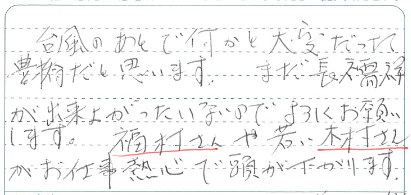 台風のあとで何かと大変だった
だと思います。 まだ
が出来よがったいないので よろしくお願い
します。 福村さん や 若い 木村さん
がお仕事熱心で頭が下がります。